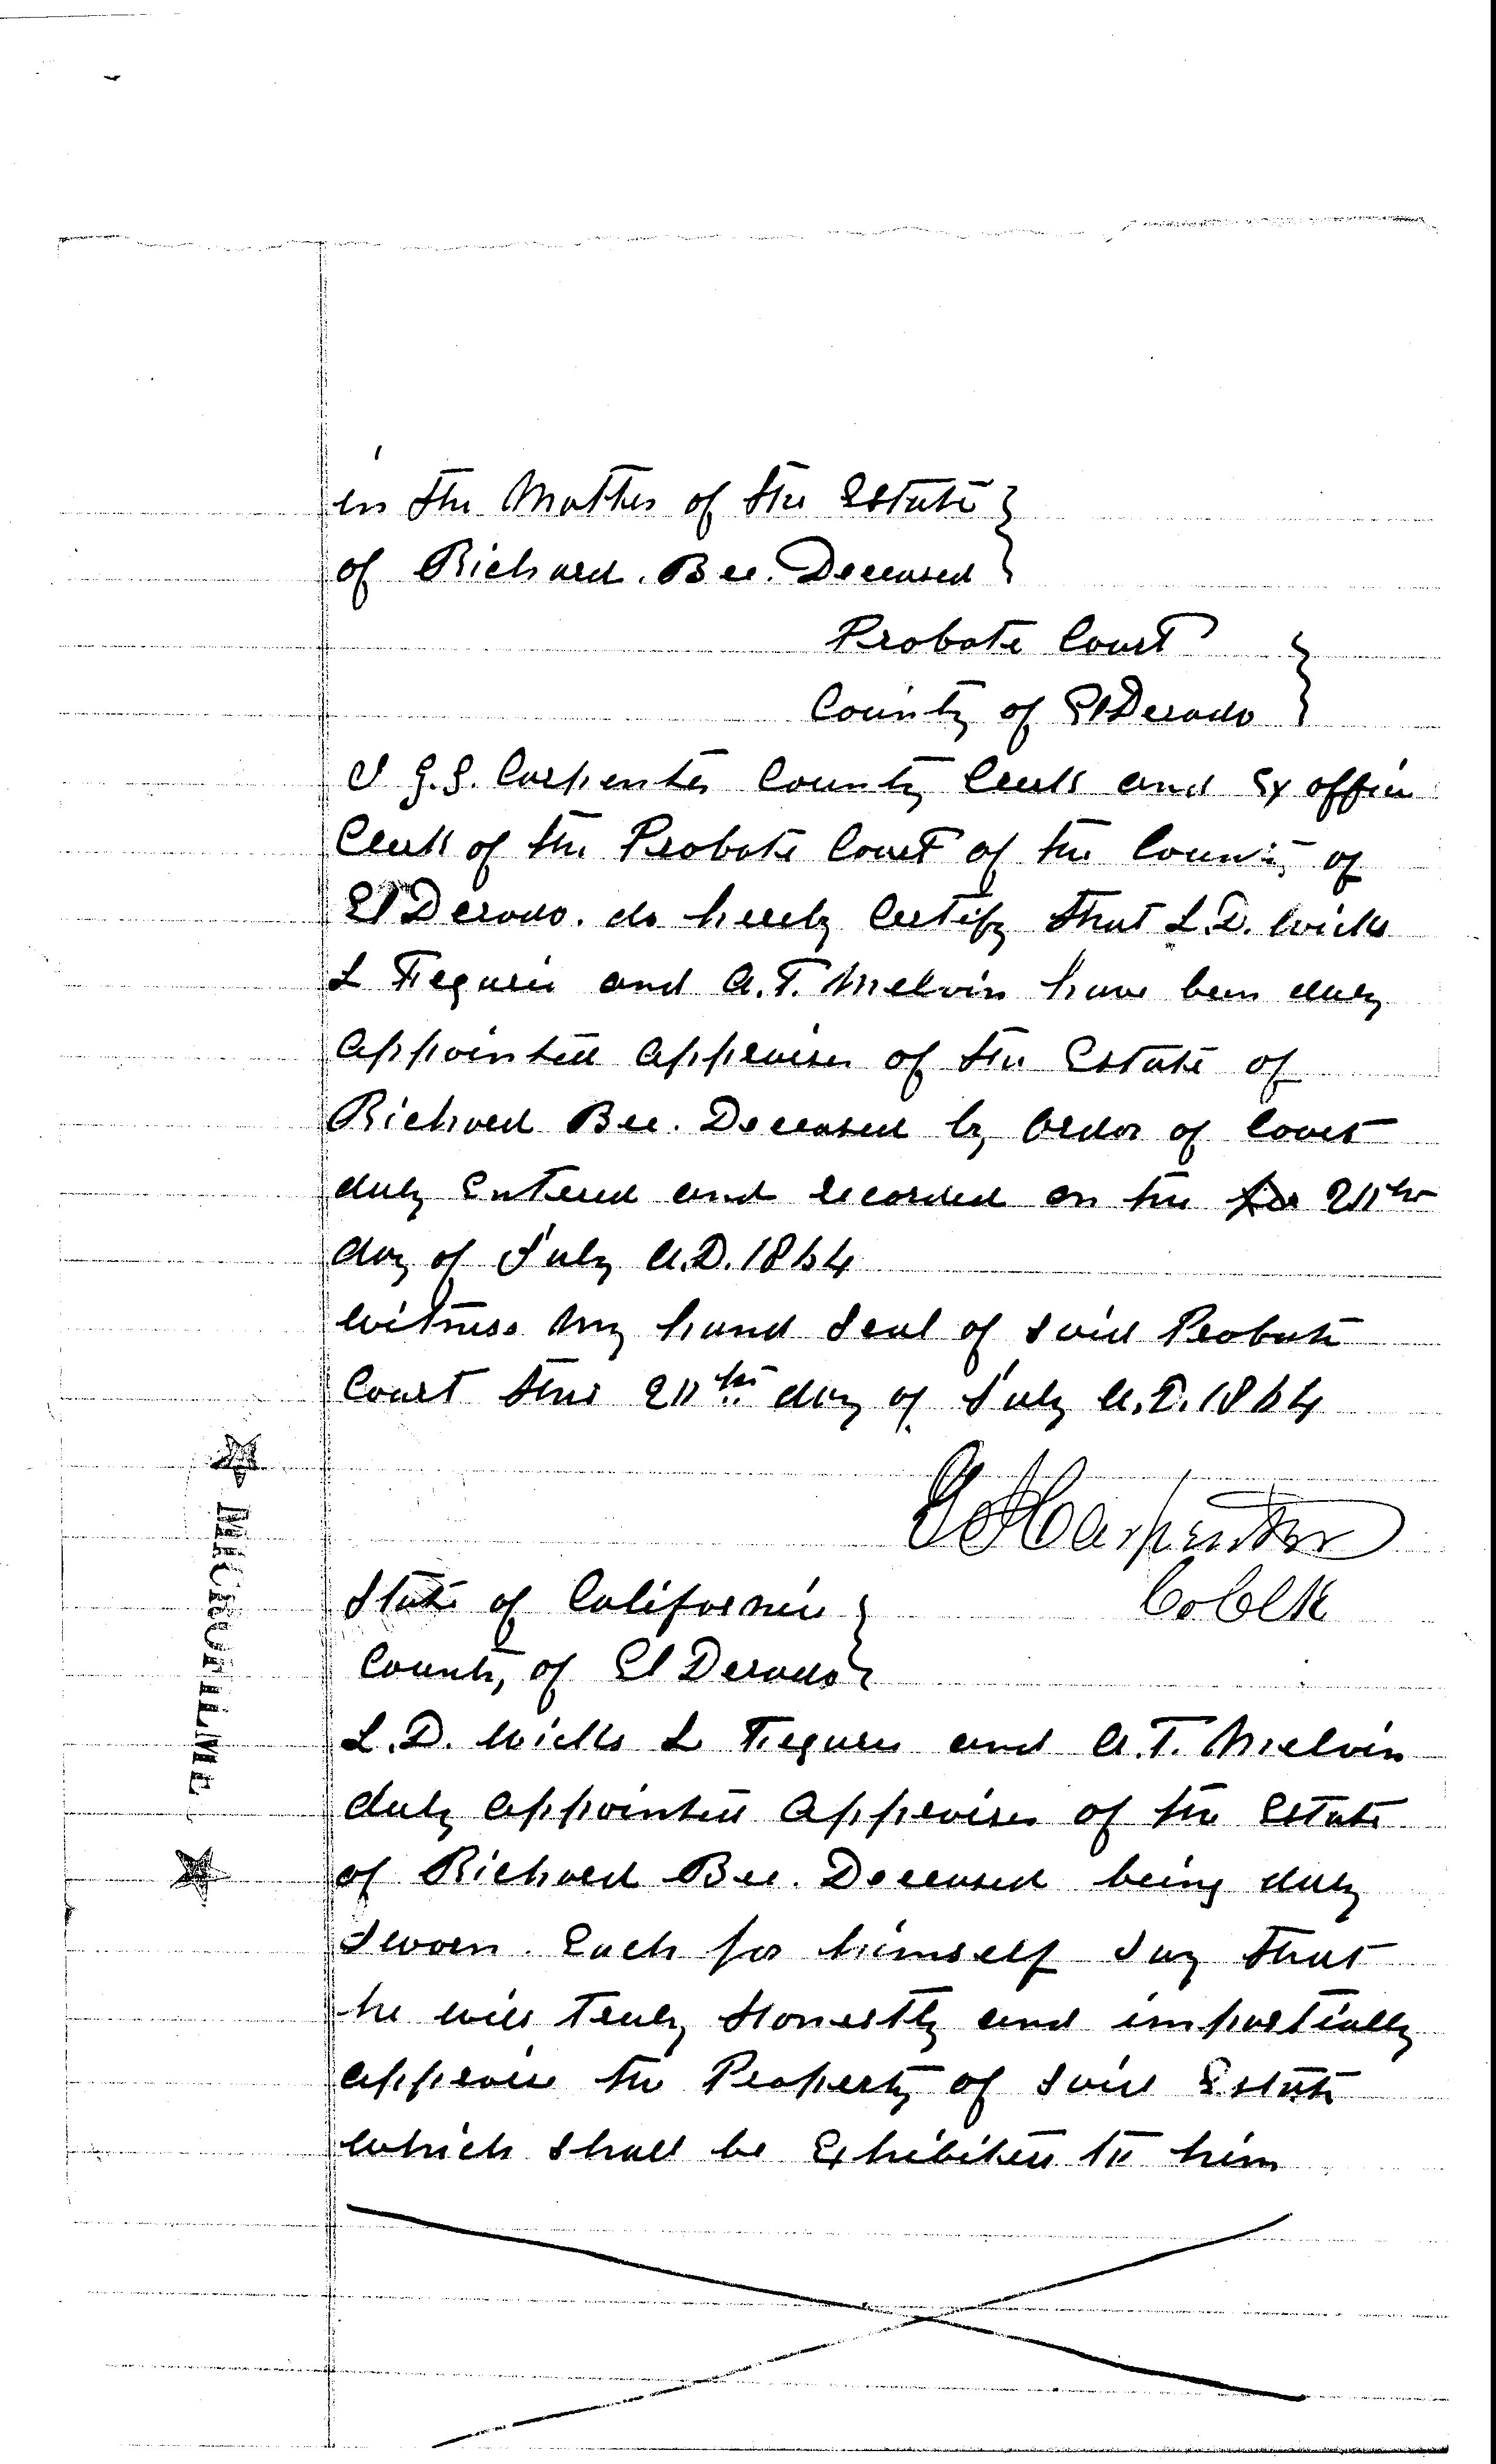 in the Matter of the Estate
of Richard. Bee. Deceased
Probate Court
County of El Dorado
I G.S. Carpenter County Clerk and Ex officio
Clerk of the Probate Court of the County of
El Dorado. do hereby Certify that L.D. Wicks
L and A.T. Melvin have been duly
appointed appraisers of the Estate of
Richard Bee. Deceased by Order of Court
duly Entered and recorded on the
day of July A.D. 1864
Witness My hand Seal of said Probate
Court this day of July A.D. 1864
Carpenter
Co Clk
State of California
County of El Dorado
L.D. Wicks L and A.T. Melvin
duly appointed appraisers of the Estate
of Richard Bee. Deceased being duly
Sworn. Each for himself Say that
he will truly Honestly and impartially
appraise the Property of said Estate
which shall be Exhibited to him
MICROFILMED